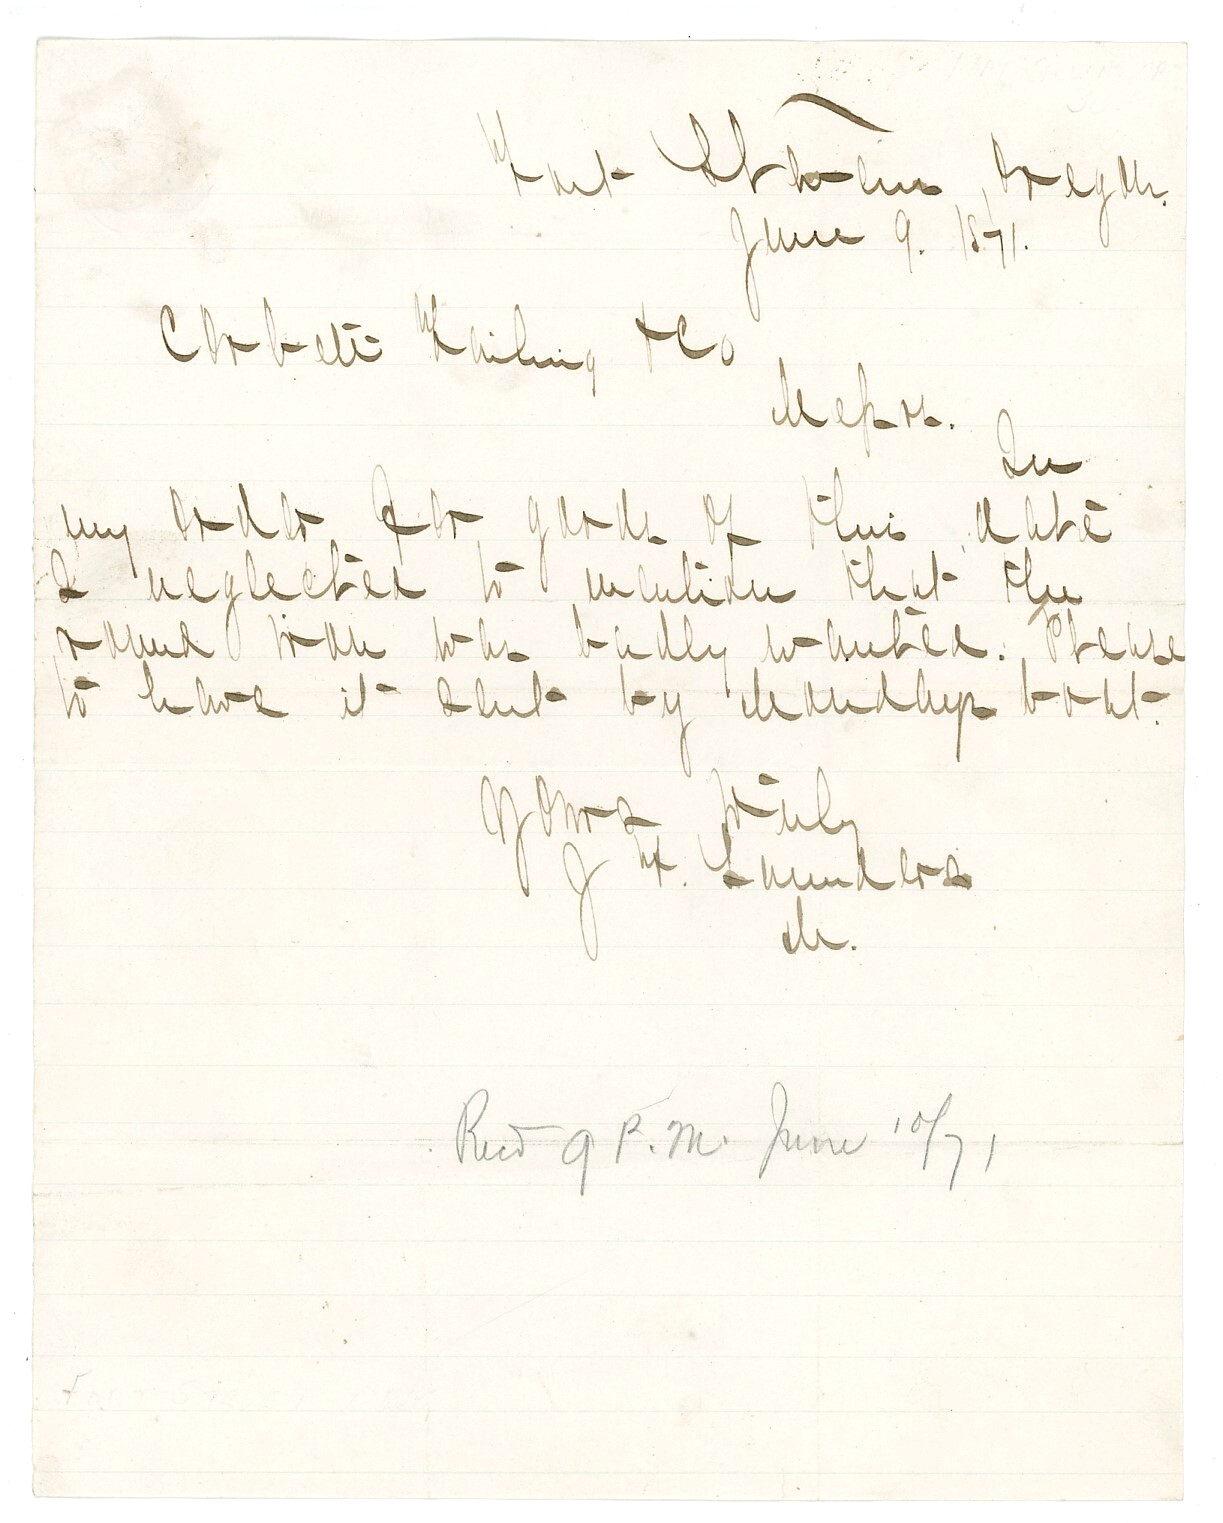 Fort Stevens, Oregon.
June 9. 1871.
Corbett Failing & Co
Messrs.
In
my order for goods of this date
I neglected to mention that the
round iron was badly wanted. Please
to have it sent by Mondays boat.
Yours truly
J H. Saunders
Recd 9 P.M. June 10/71